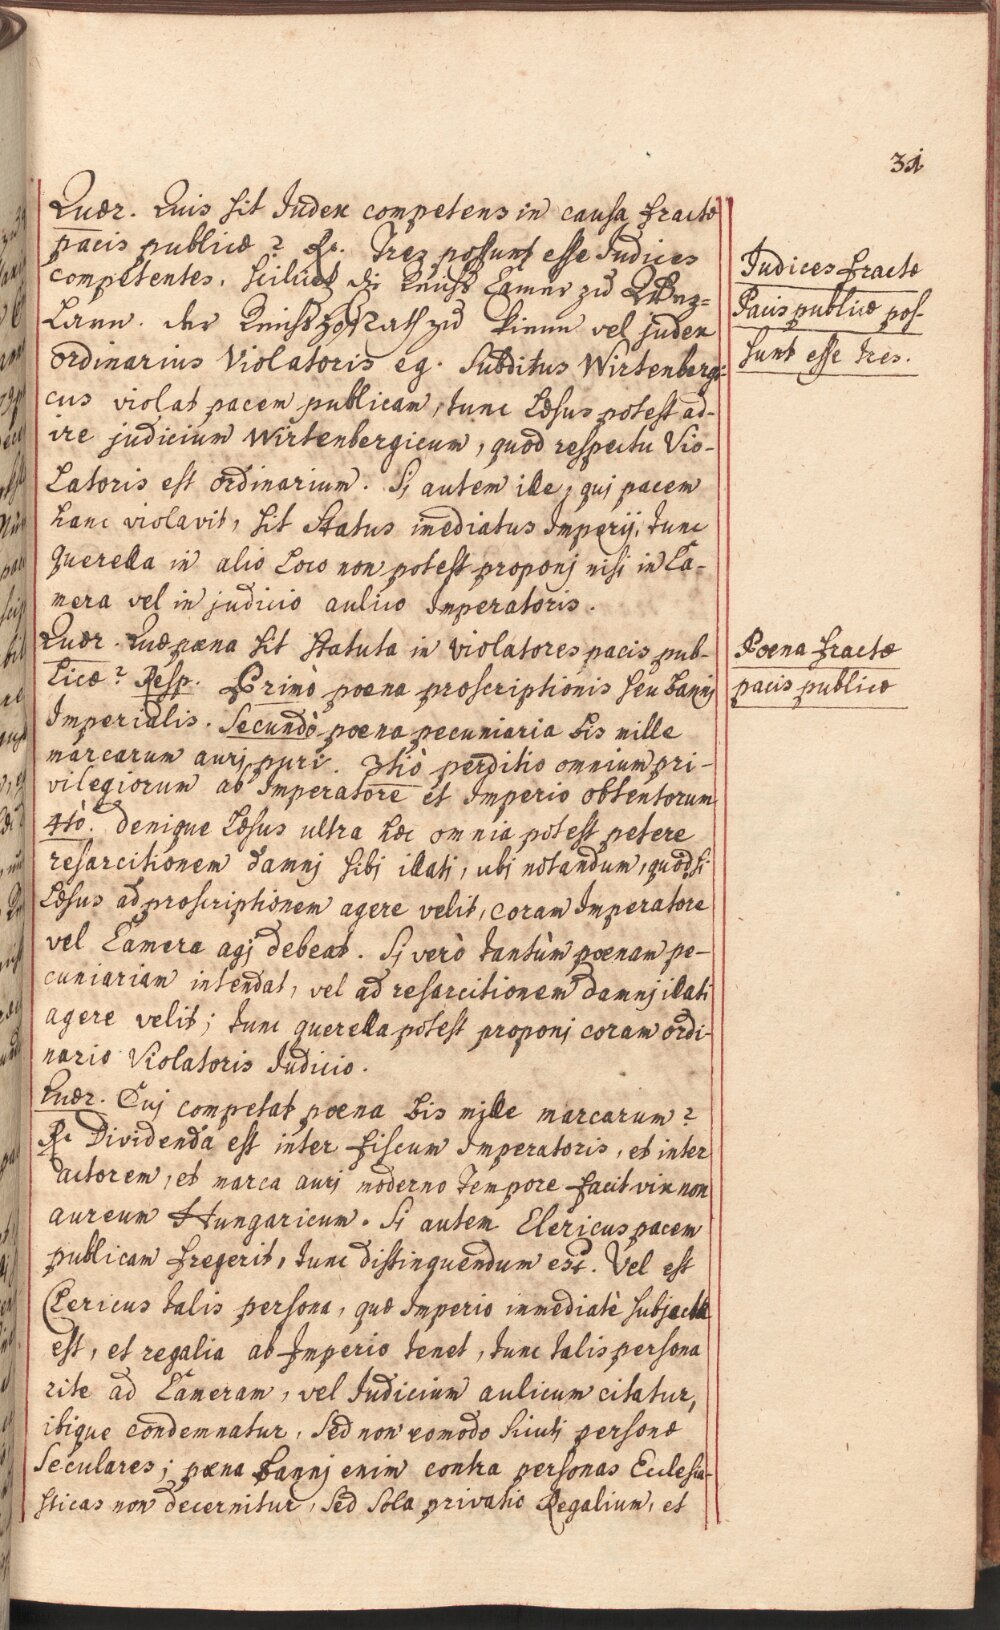 31
Quær. Quis sit Judex competens in causa fractæ
pacis publicæ? R. Tres possunt esse Judices
competentes. scilicet die Reichs Camer zu Wez-
larn. der ReichsHofRath zu Wienn vel judex
ordinarius Violatoris eg. Subditus Wirtenbergi-
cus violat pacem publicam, tunc Læsus potest ad-
ire judicium Wirtenbergicum, quod respectu Vio-
latoris est ordinarium. Sj autem ille, quj pacem
hanc violavit, sit Status imediatus Imperij, tunc
querella in alio Loco non potest proponj nisi in Ca-
mera vel in judicio aulico Imperatoris.
Quær. Quæ pœna sit statuta in Violatores pacis pub-
licæ? Resp. Primò poena proscriptionis seu bannj
Imperialis. Secundò poena pecuniaria bis mille
marcarum aurj puri. 3tiò perditio omnium pri-
vilegiorum ab Imperatore et Imperio obtentorum
4tò. Denique Læsus ultra hæc omnia potest petere
resarcitionem damnj sibj illati, ubj notandum, quod si
Læsus ad proscriptionem agere velit, coram Imperatore
vel Camera agj debeat. Sj verò tantùm poenam pe-
cuniariam intendat, vel ad resarcitionem damnj illati
agere velit; tunc querella potest proponj coram ordi-
nario Violatoris Judicio.
Quær. Cuj competat poena bis mille marcarum?
R. Dividenda est inter fiscum Imperatoris, et inter
actorem, et marca aurj moderno tempore facit vix non
aureum Hungaricum. Sj autem Clericus pacem
publicam fregerit, tunc distinguendum est. Vel est
Clericus talis persona, quæ Imperio immediatè subjecta
est, et regalia ab Imperio tenet, tunc talis persona
rite ad Cameram, vel Judicium aulicum citatur,
ibique condemnatur, sed non eomodo sicuti personæ
Seculares; pæna Bannj enim contra personas Ecclesia-
sticas non decernitur, sed sola privatio Regalium, et
Judices fractæ
Pacis publicæ pos-
sunt esse tres.
Poena fractæ
pacis publicæ